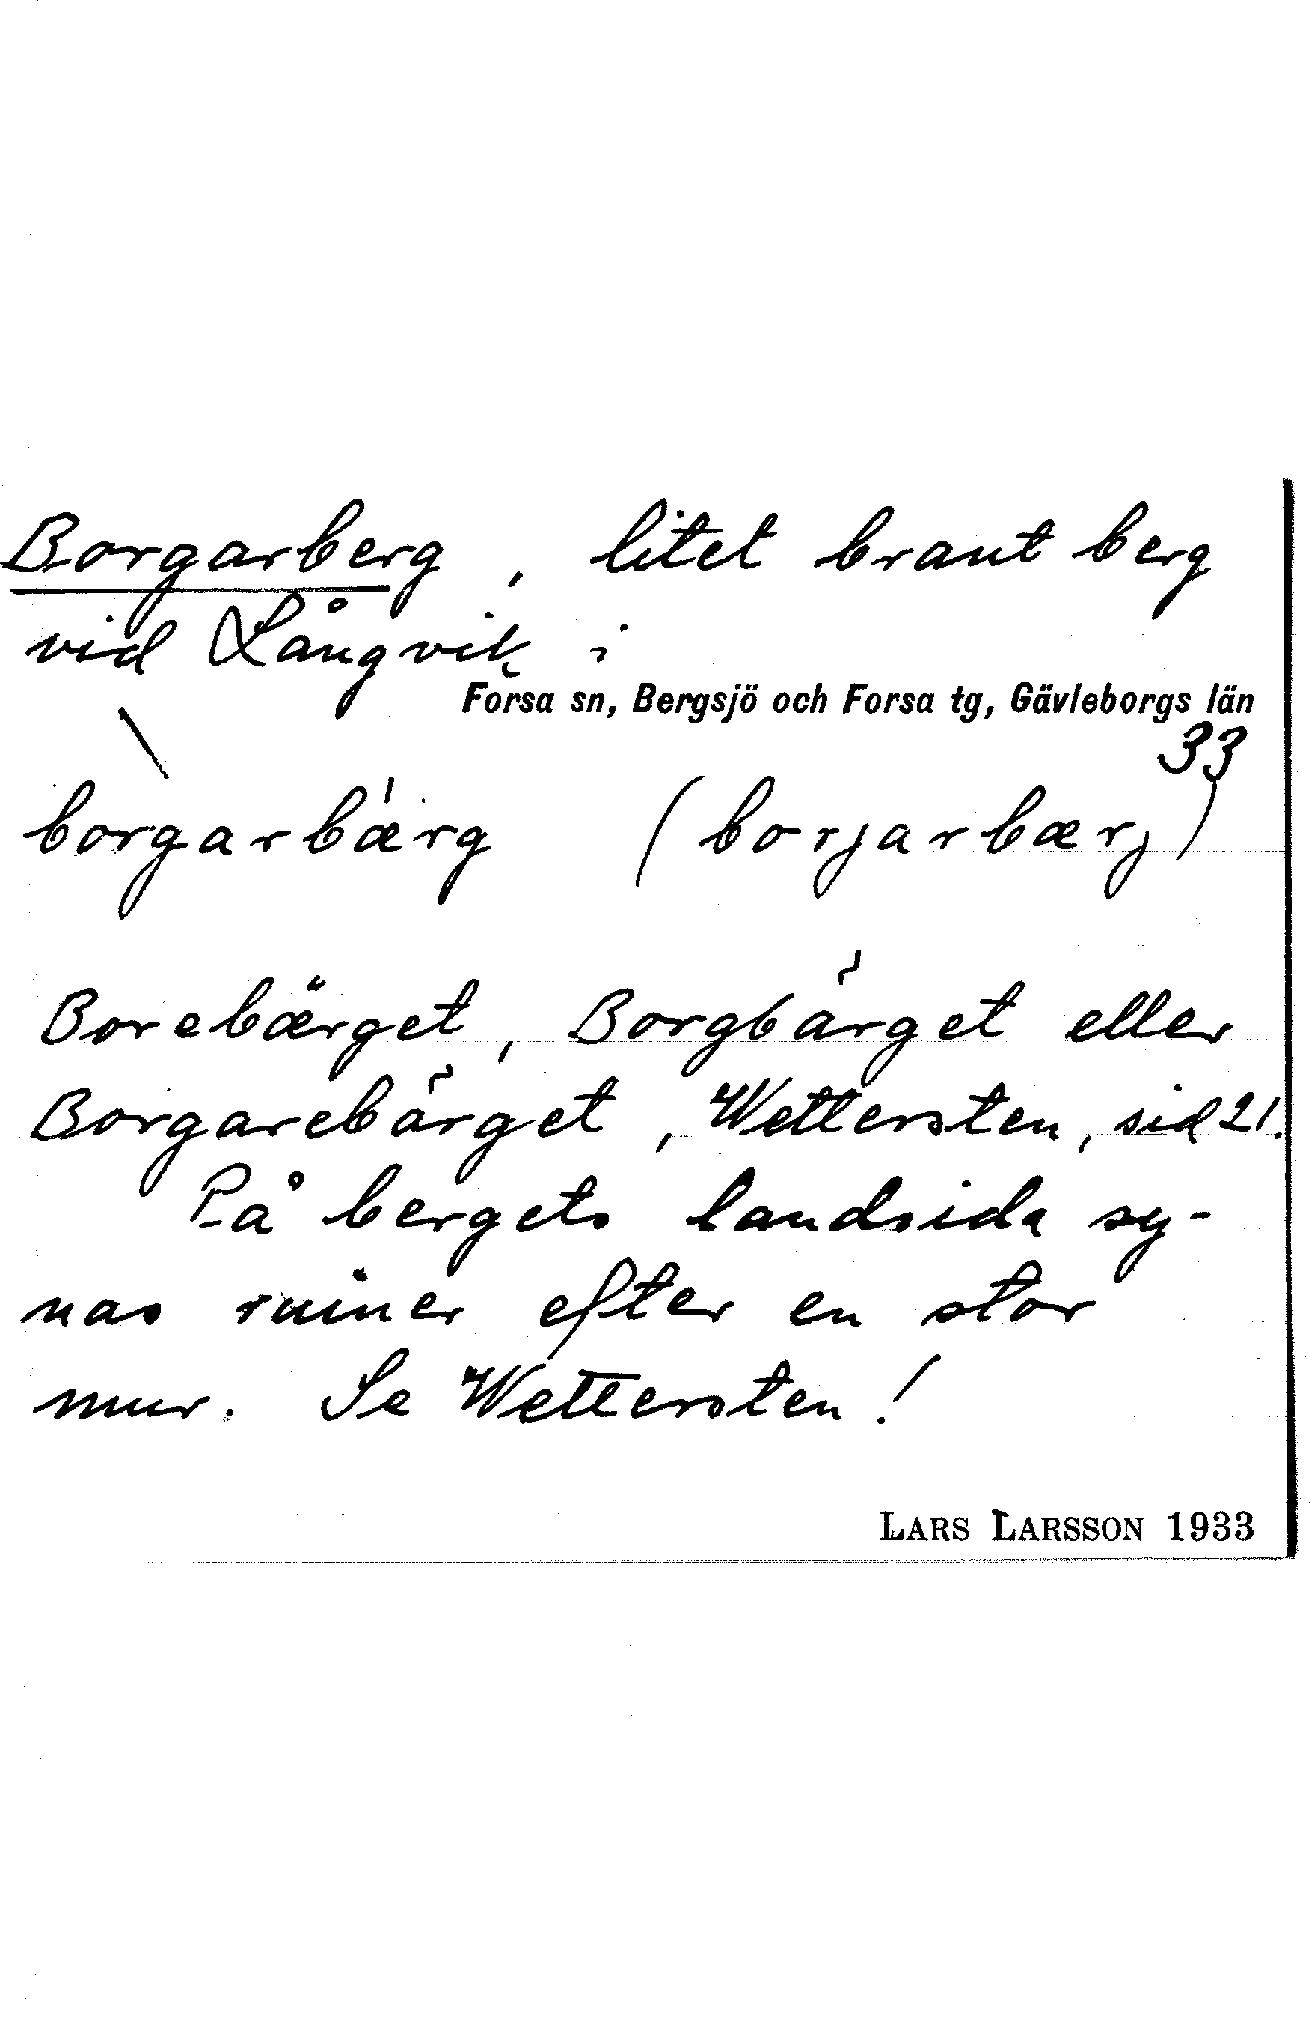 Borgarberg, litet brant berg
vid Långvik i
Forsa sn, Bergsjö och Forsa tg, Gävleborgs län
33
borgarbærg (borjarbærj)
Borebærget, Borgbärget eller
Borgarebärget, Wettersten, sid 21.
På bergets landsida sy-
nas ruiner efter en stor
mur. Se Wettersten!
LARS LARSSON 1933